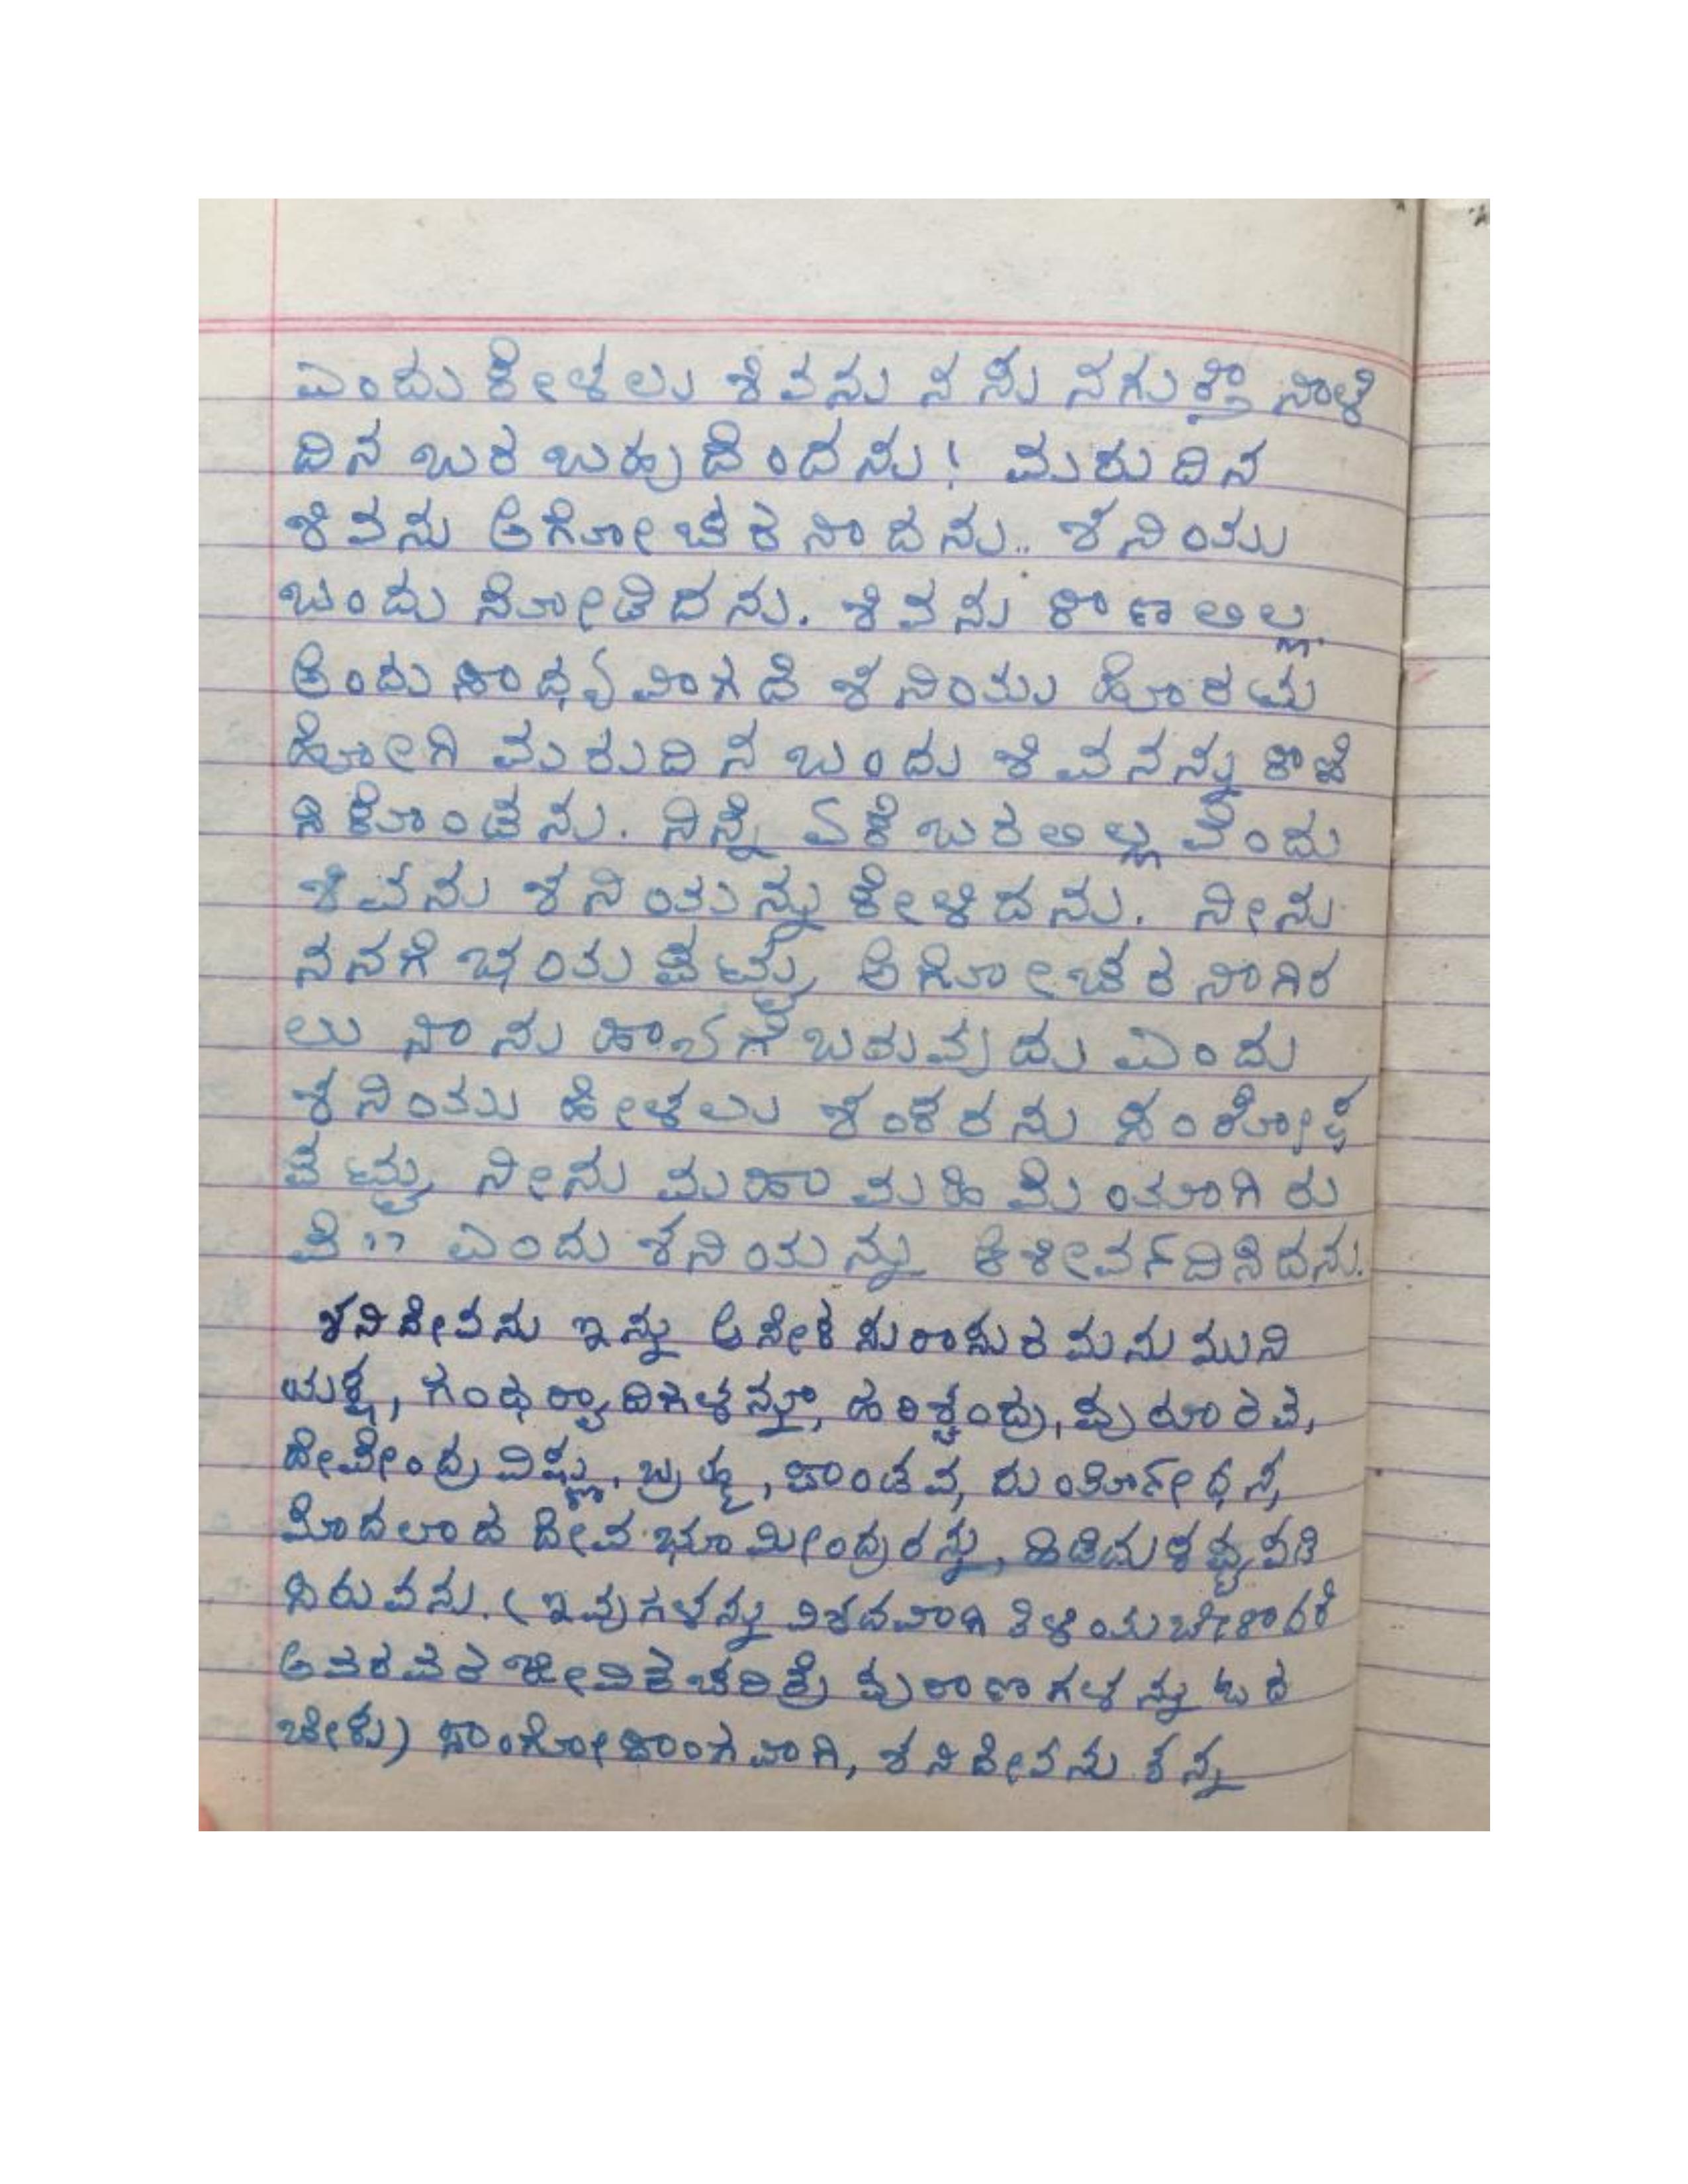 ಎಂದು ಕೇಳಲು ಶಿವನು ನ ಸು ನಗುತ್ತಾ ನಾಳೆ
ದಿನ ಬರ ಬಹು ದೆಂದನು! ಮರುದಿನ
ಶಿವನು ಅಗೋಚರ ನಾದನು.. ಶನಿಯು
ಬಂದು ನೋಡಿದನು. ಶಿವನು ಕಾಣಲಿಲ್ಲ
ಅಂದು ಸಾಧ್ಯವಾಗದೆ ಶನಿಯು ಹೊರಟು
ಹೋಗಿ ಮರುದಿನ ಬಂದು ಶಿವನನ್ನು ಕಾಣಿ
ಸಿಕೊಂಡನು. ನಿನ್ನೆ ಏಕೆ ಬರಲಿಲ್ಲ ವೆಂದು
ಶಿವನು ಶನಿಯನ್ನು ಕೇಳಿದನು. ನೀನು
ನನಗೆ ಭಯ ಪಟ್ಟು ಅಗೋಚರ ನಾಗಿರ
ಲು ನಾನು ಹಾಗೆ ಬರುವುದು ಎಂದು
ಶನಿಯು ಹೇಳಲು ಶಂಕರನು ಸಂತೋಷ
ಪಟ್ಟು ನೀನು ಮಹಾ ಮಹಿಮೆಯಾಗಿ ರು
ವೆ" ಎಂದು ಶನಿಯನ್ನು ಆಶೀರ್ವದಿಸಿದನು.
ಶನಿದೇವನು ಇನ್ನು ಅನೇಕ ಸುರಾಸುರ ಮನು ಮುನಿ
ಯಕ್ಷ, ಗಂಧರ್ವಾದಿಗಳನ್ನೂ, ಹರಿಶ್ಚಂದ್ರ, ಪುರೂರವ,
ದೇವೇಂದ್ರ ವಿಷ್ಣು, ಬ್ರಹ್ಮ, ಪಾಂಡವ, ದುರ್ಯೋಧನ,
ಮೊದಲಾದ ದೇವ ಭೂಮೀಂದ್ರರನ್ನು,
ಸಿರುವನು. (ಇವುಗಳನ್ನು ವಿಶದವಾಗಿ ತಿಳಿಯಬೇಕಾದರೆ
ಅವರವರ ಜೀವಿತ ಚರಿತ್ರೆ ಪುರಾಣಗಳನ್ನು ಓದ
ಬೇಕು) ಸಾಂಗೋಪಾಂಗವಾಗಿ, ಶನಿದೇವನು ತನ್ನ